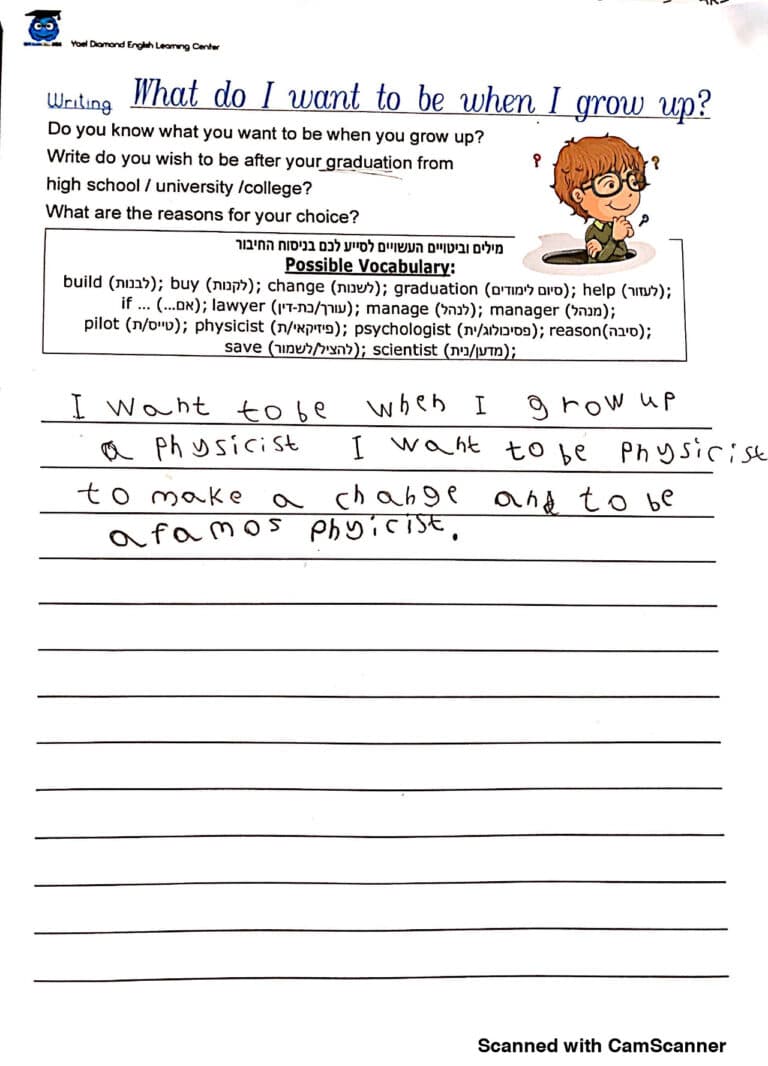 Yael Diamond English Learning Center
Writing What do I want to be when I grow up?
Do you know what you want to be when you grow up?
Write do you wish to be after your graduation from
high school / university /college?
What are the reasons for your choice?
מילים וביטויים העשויים לסייע לכם בניסוח החיבור
Possible Vocabulary:
build (לבנות); buy (לקנות); change (לשנות); graduation (סיום לימודים); help (לעזור);
if ... (אם...); lawyer (עורך/כת-דין); manage (לנהל); manager (מנהל);
pilot (טייס/ת); physicist (פיזיקאי/ת); psychologist (פסיכולוג/ית); reason(סיבה);
save (להציל/לשמור); scientist (מדען/נית);
I want to be when I grow up
a physicist I want to be physicist
to make a change and to be
a famos phyicist.
Scanned with CamScanner